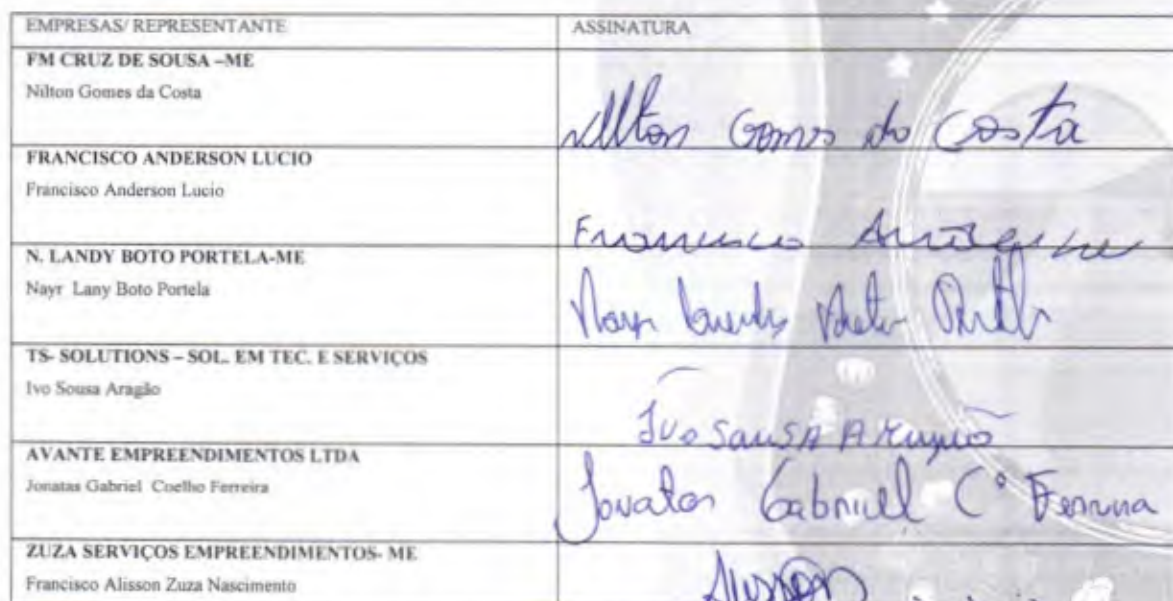 EMPRESAS/ REPRESENTANTE ASSINATURA
FM CRUZ DE SOUSA –ME
Nilton Gomes da Costa
Nilton Gomes da Costa
FRANCISCO ANDERSON LUCIO
Francisco Anderson Lucio
Francisco
N. LANDY BOTO PORTELA-ME
Nayr Lany Boto Portela
TS- SOLUTIONS – SOL. EM TEC. E SERVIÇOS
Ivo Sousa Aragão
Ivo Sousa Aragão
AVANTE EMPREENDIMENTOS LTDA
Jonatas Gabriel Coelho Ferreira
Jonatas Gabriel Cº Ferreira
ZUZA SERVIÇOS EMPREENDIMENTOS- ME
Francisco Alisson Zuza Nascimento